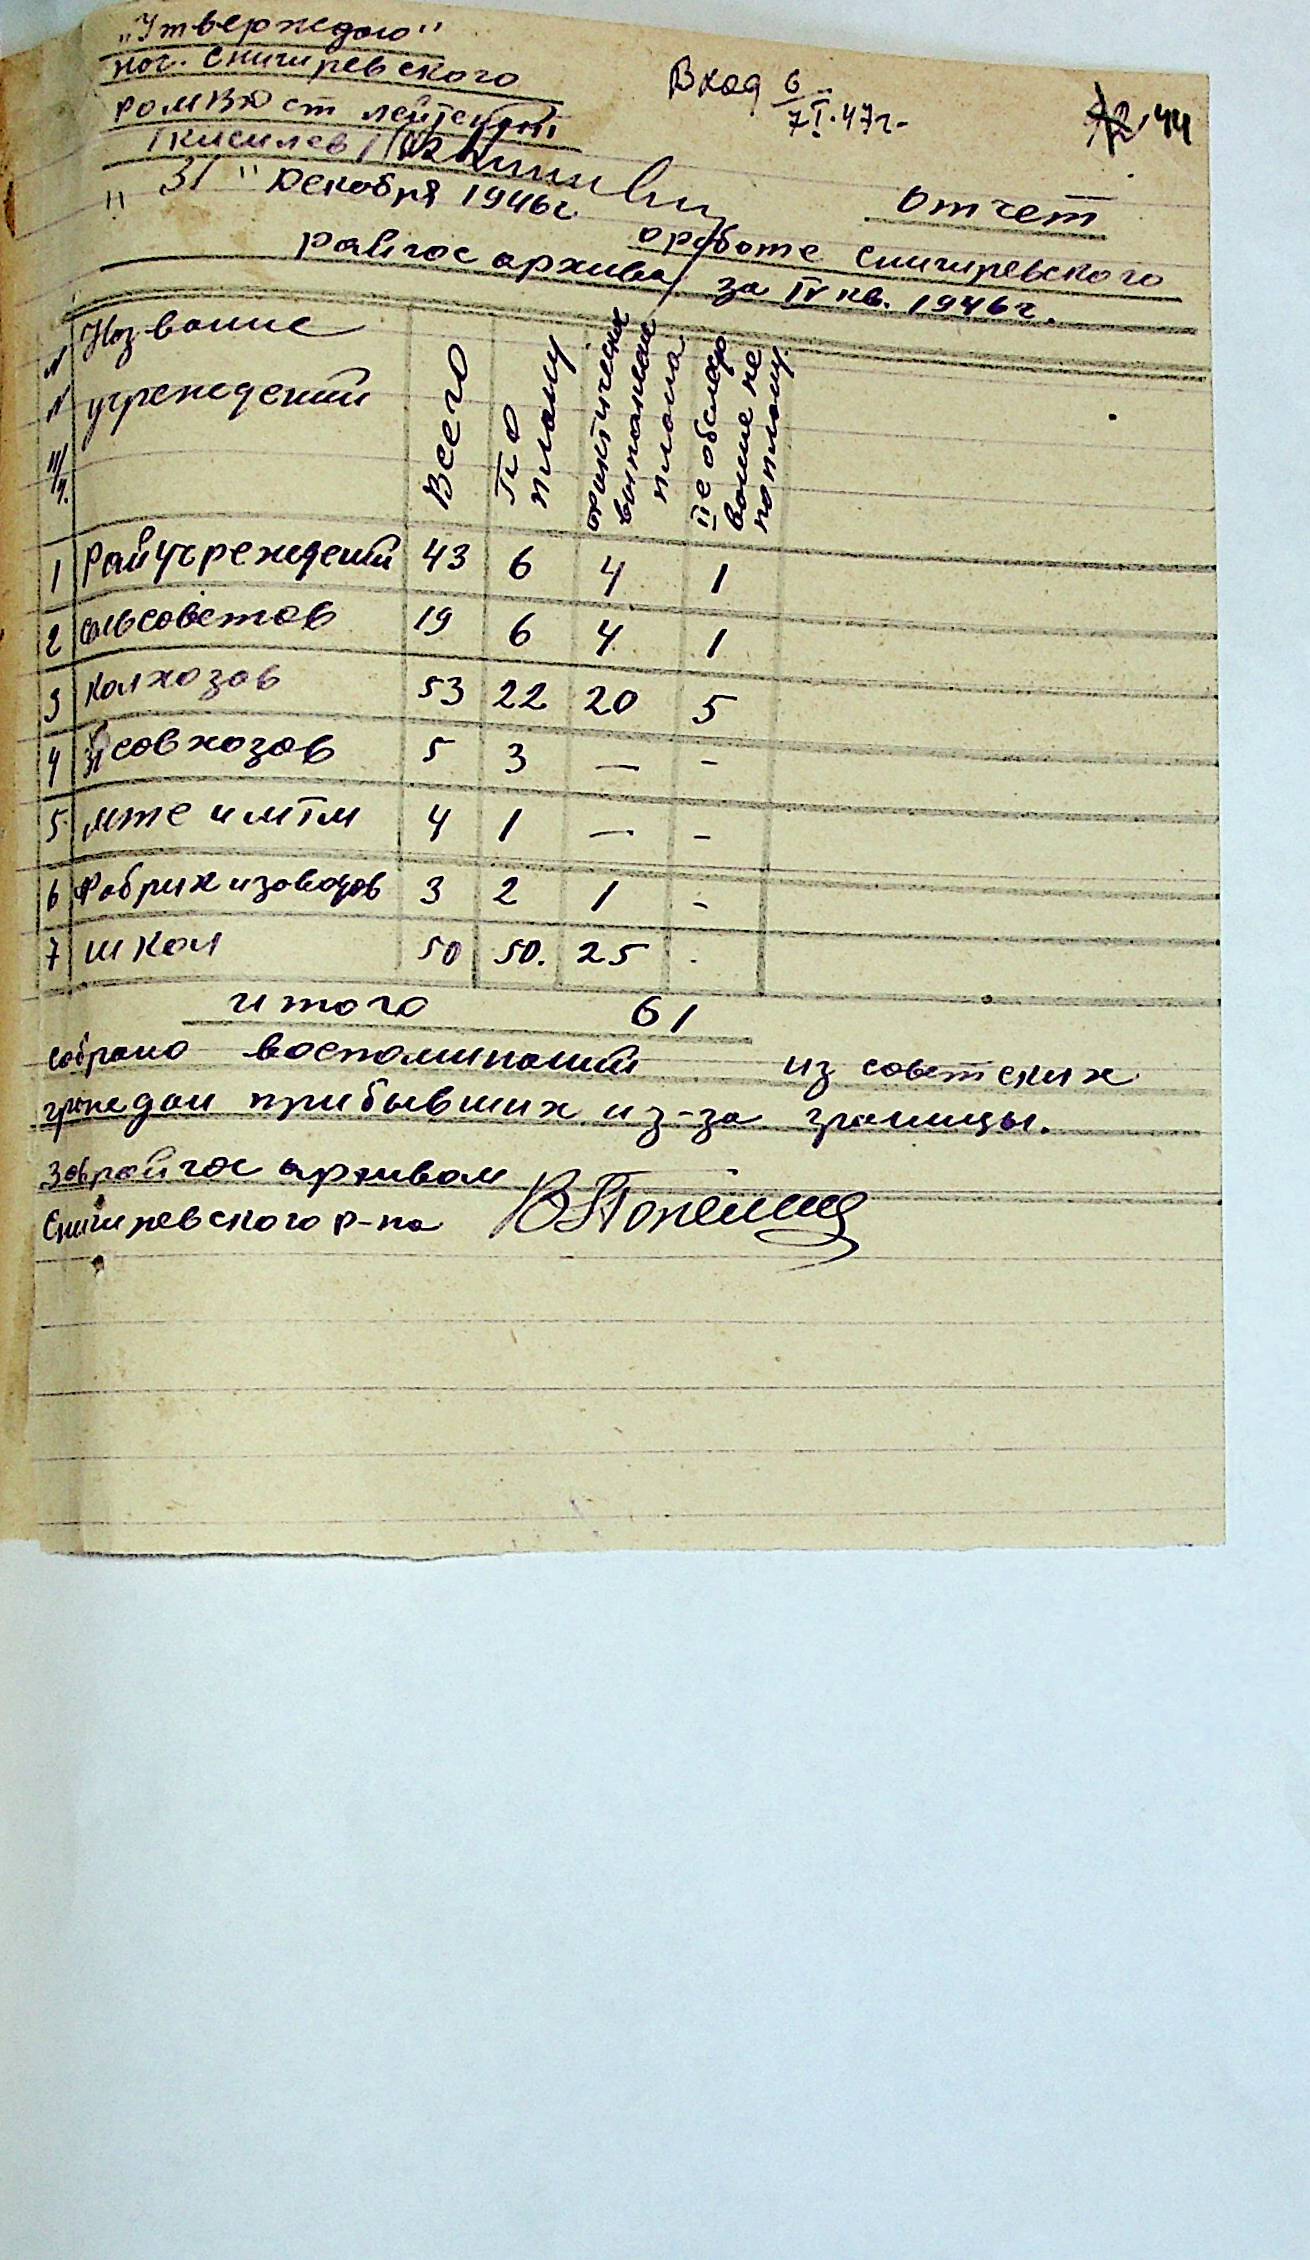 "Утверждаю"
нач. Снигиревского
РОМВД ст лейтенант
/Киселев/
"31" Декабря 1946г
Вход 6
7/I-47г.
44
Отчет
о работе Снигиревского
райгос архива за IV кв. 1946г.
№ № п/п. Название учреждений Всего По плану фактически выполнение плана
1 Райучреждений 43 6 4 1
2 сельсоветов 19 6 4 1
3 колхозов 53 22 20 5
4 совхозов 5 3 — -
5 мтс и мтм 4 1 — -
6 Фабрик и заводов 3 2 1 -
7 школ 50 50. 25 .
итого 61
собрано воспоминаний из советских
граждан прибывших из-за границы.
Заврайгос архивом
Снигиревского р-на